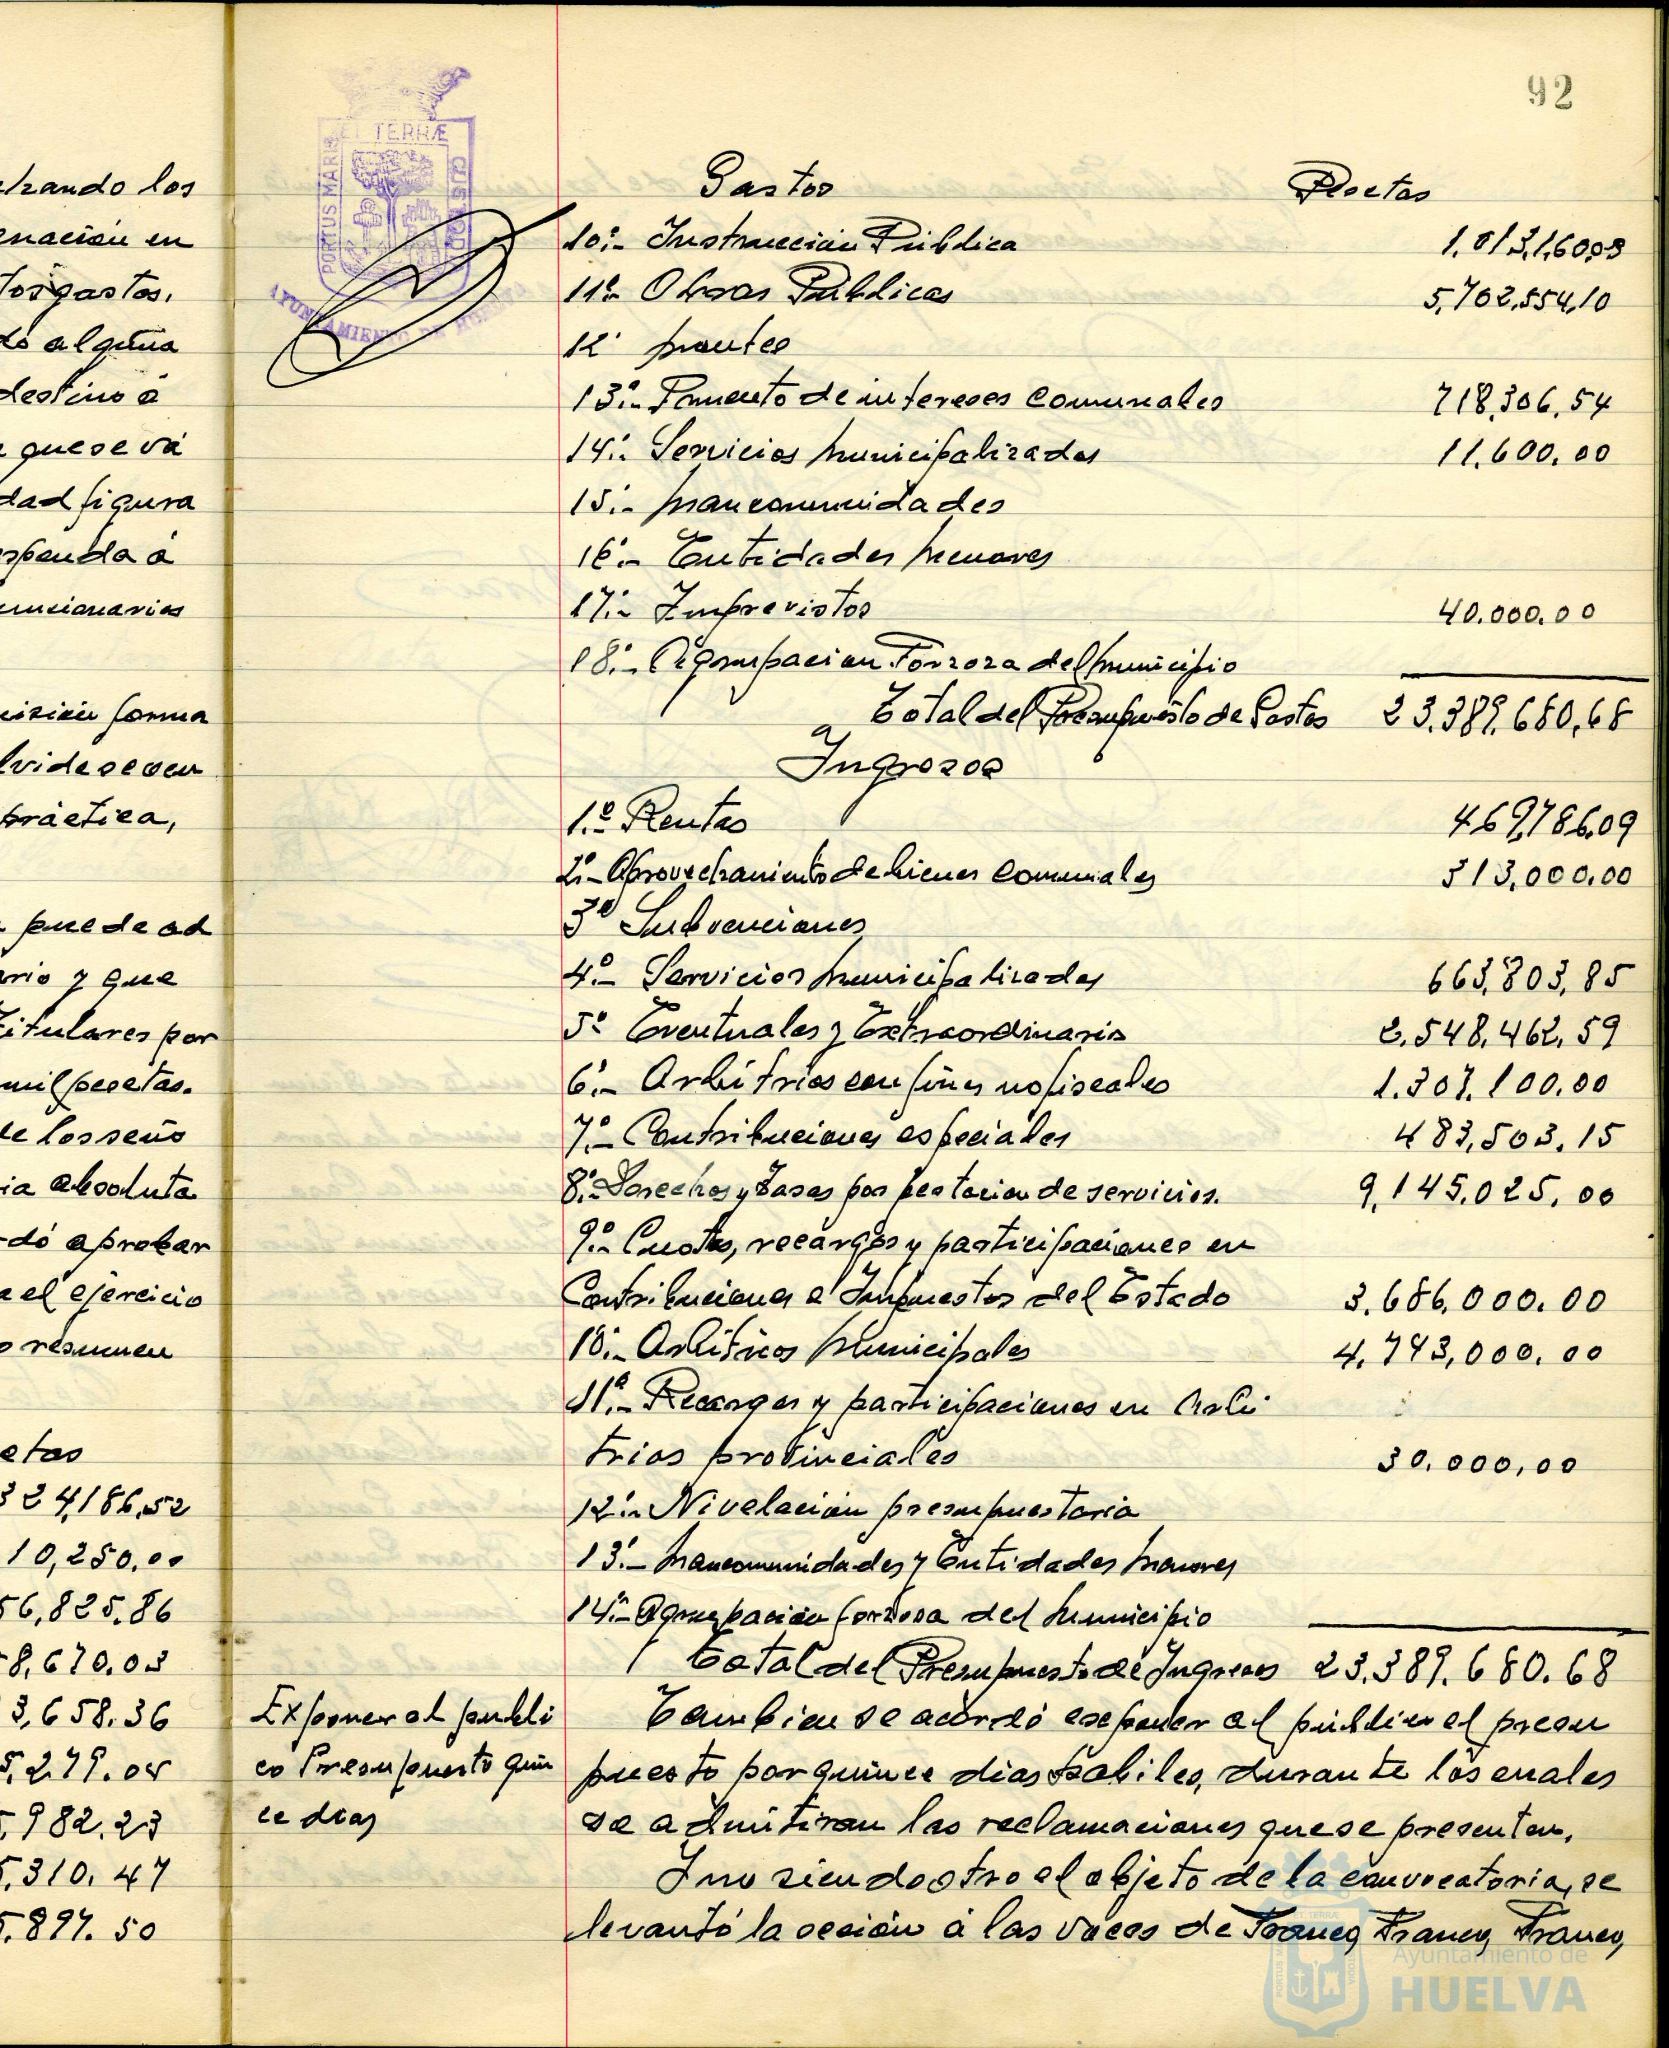 92
lizando los
enación en
tos gastos,
do alguna
destino á
que se vá
dad figura
esponda á
uncionarios
misión forma
lvidesecen
práctica,
puede ad
ario y que
Titulares por
mil pesetas.
de los seño
ia absoluta
dó aprobar
a el ejercicio
o resumen
etas
324,186,52
10,250,00
56,825.86
8,670.03
3,658.36
5,279.04
5,982.23
5,310.47
5.897.50
PORTUS MARIS ET TERRÆ CUSTODI
AYUNTAMIENTO DE HUELVA
Exponer al públi
co Presupuesto quin
ce dias
Gastos Pesetas
10º.- Instrucción Pública 1.013,160,03
11º.- Obras Públicas 5,702,554,10
12º montes
13º.- Fomento de intereses comunales 718,306,54
14º.- Servicios municipalizados 11,600,00
15º.- mancomunidades
16º.- Entidades menores
17º.- Imprevistos 40.000.00
18º.- Agrupacion Forzoza del municipio
Total del Presupuesto de Gastos 23,389,680,68
Ingresos
1.º Rentas 469,786,09
2º.- Aprovechamiento de bienes comunales 313,000.00
3º Subvenciones
4º.- Servicios municipalizados 663,803,85
5º Eventuales y Extraordinario 2.548,462,59
6º.- Arbitrios con fines no fiscales 1.307,100,00
7º.- Contribuciones especiales 483,503,15
8º.- Derechos y Tasas por pestacion de servicios. 9,145,025,00
9º.- Cuotas, recargos y participaciones en
Contribuciones e Impuestos del Estado 3.686,000.00
10º.- Arbitrios Municipales 4,743,000,00
11º.- Recargos y participaciones en Arbi
trios provinciales 30.000,00
12º.- Nivelación presupuestaria
13º.- Mancomunidades y Entidades menores
14º.- Agrupación forzosa del Municipio
Total del Presupuesto de Ingresos 23.389.680.68
Tambien se acordó exponer al público el presu
puesto por quince dias habiles, durante los cuales
se admitiran las reclamaciones que se presenten.
Y no siendo otro el objeto de la convocatoria, se
levantó la sesión á las voces de Franco, Franco, Franco,
Ayuntamiento de
HUELVA